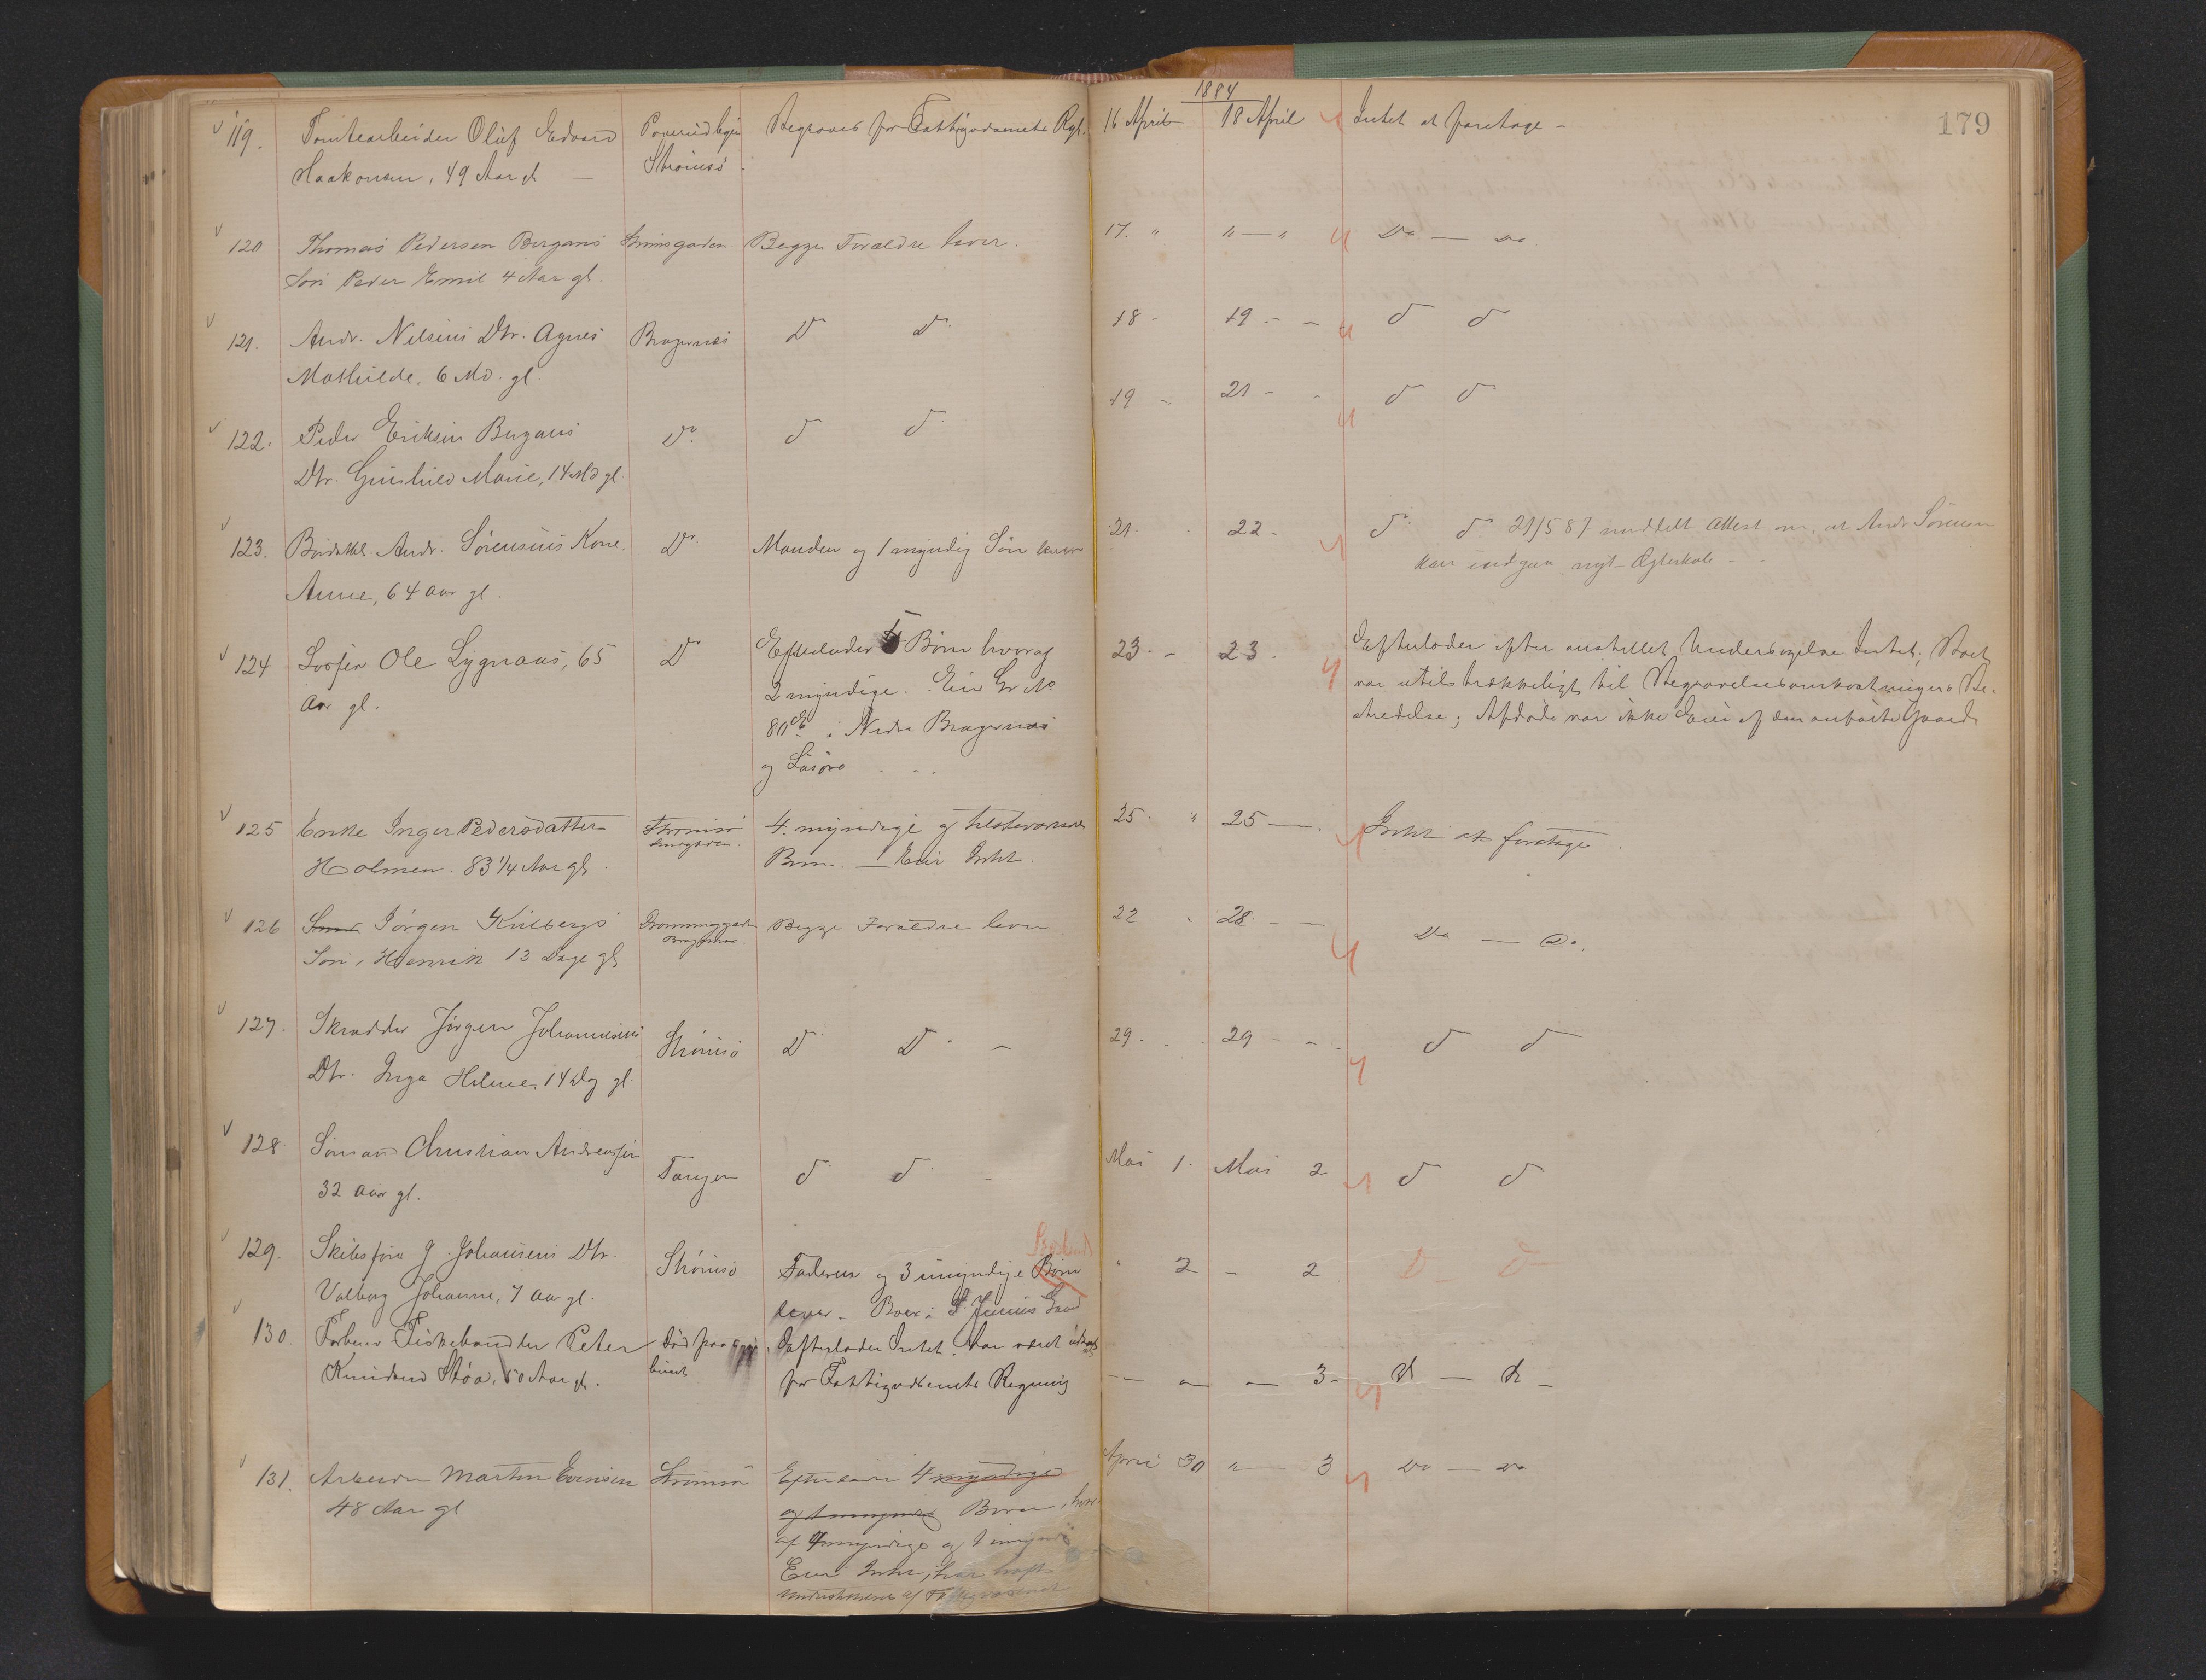 1884
179
119. Tomtearbeider Oluf Edvard Strømsø Begraves for Fattigvæsenets Rgl. 16 April 18 April Intet at foretage -
Haakonsen, 49 Aar gl
120 Thomas Pedersen Bergans Begge Forældre lever. 17. " " — " Do — Do.
Søn Peder Emil 4 Aar gl.
121. Andr. Nelsens Dtr. Agnes Bragernæs D D. 18 - 19 - - d d
Mathilde, 6 Md. gl.
122. Peder Eriksen Do. d d 19 - 21 - - d d
Dtr. Gunhild Marie, 14 Md gl.
123. Andr. Sørensens Kone Do. Manden og 1 myndig Søn lever 21. 22 - d. d 21/5 87 meddelt Attest om, at Andr Sørensen
Anne, 64 Aar gl. kan indgaa nyt Ægteskab -
124 Ole Lygnaas, 65 Do Efterlader 5 Børn hvoraf 23. - 23 - Efterlader efter anstillet Undersøgelse Intet; Boet
Aar gl. 2 myndige. Eier Gr No var utilstrækkeligt til Begravelsesomkostningers Be-
80 i Nedre Bragernæs stredelse; Afdøde var ikke Eier af den anførte Gaard
og Løsøre
125 Enke Inger Pedersdatter Strømsø 4 myndige og tilstedeværende 25. " 25 — Intet at foretage
Holmen. 83 1/4 Aar gl. Børn. — Eier Intet.
126 Jørgen Kulbergs Begge Forældre lever 22 28 - — Do — Do.
Søn, Henrik 13 Dage gl
127. Skrædder Jørgen Johannesens Strømsø D D. - 29 - 29 - - d d
Dtr. Inga Helene, 14 Dg gl
128 Sømand Christian Andreassen Tangen d d Mai 1. Mai 2 d d
32 Aar gl.
129. Skibsfører J. Johansens Dtr. Strømsø Faderen og 3 umyndige Børn " 2 - 2 D - D -
Valborg Johanne, 7 Aar gl. lever - Boer i Gaard
130. Forhenv. Fiskehandler Peter Død paa Efterlader Intet. Har været
Knudsen Støa, 50 Aar gl. for Fattigvæsenets Regning — — — 3 - D — D -
131. Arbeider Martin Evensen Strømsø Efterlader 4 myndige April 30 " — 3 Do — Do
48 Aar gl og 1 umyndig Børn, hvor
af 4 myndige og 1 umyndig
Eier Intet, har haft
Understøttelse af Fattigvæsenet